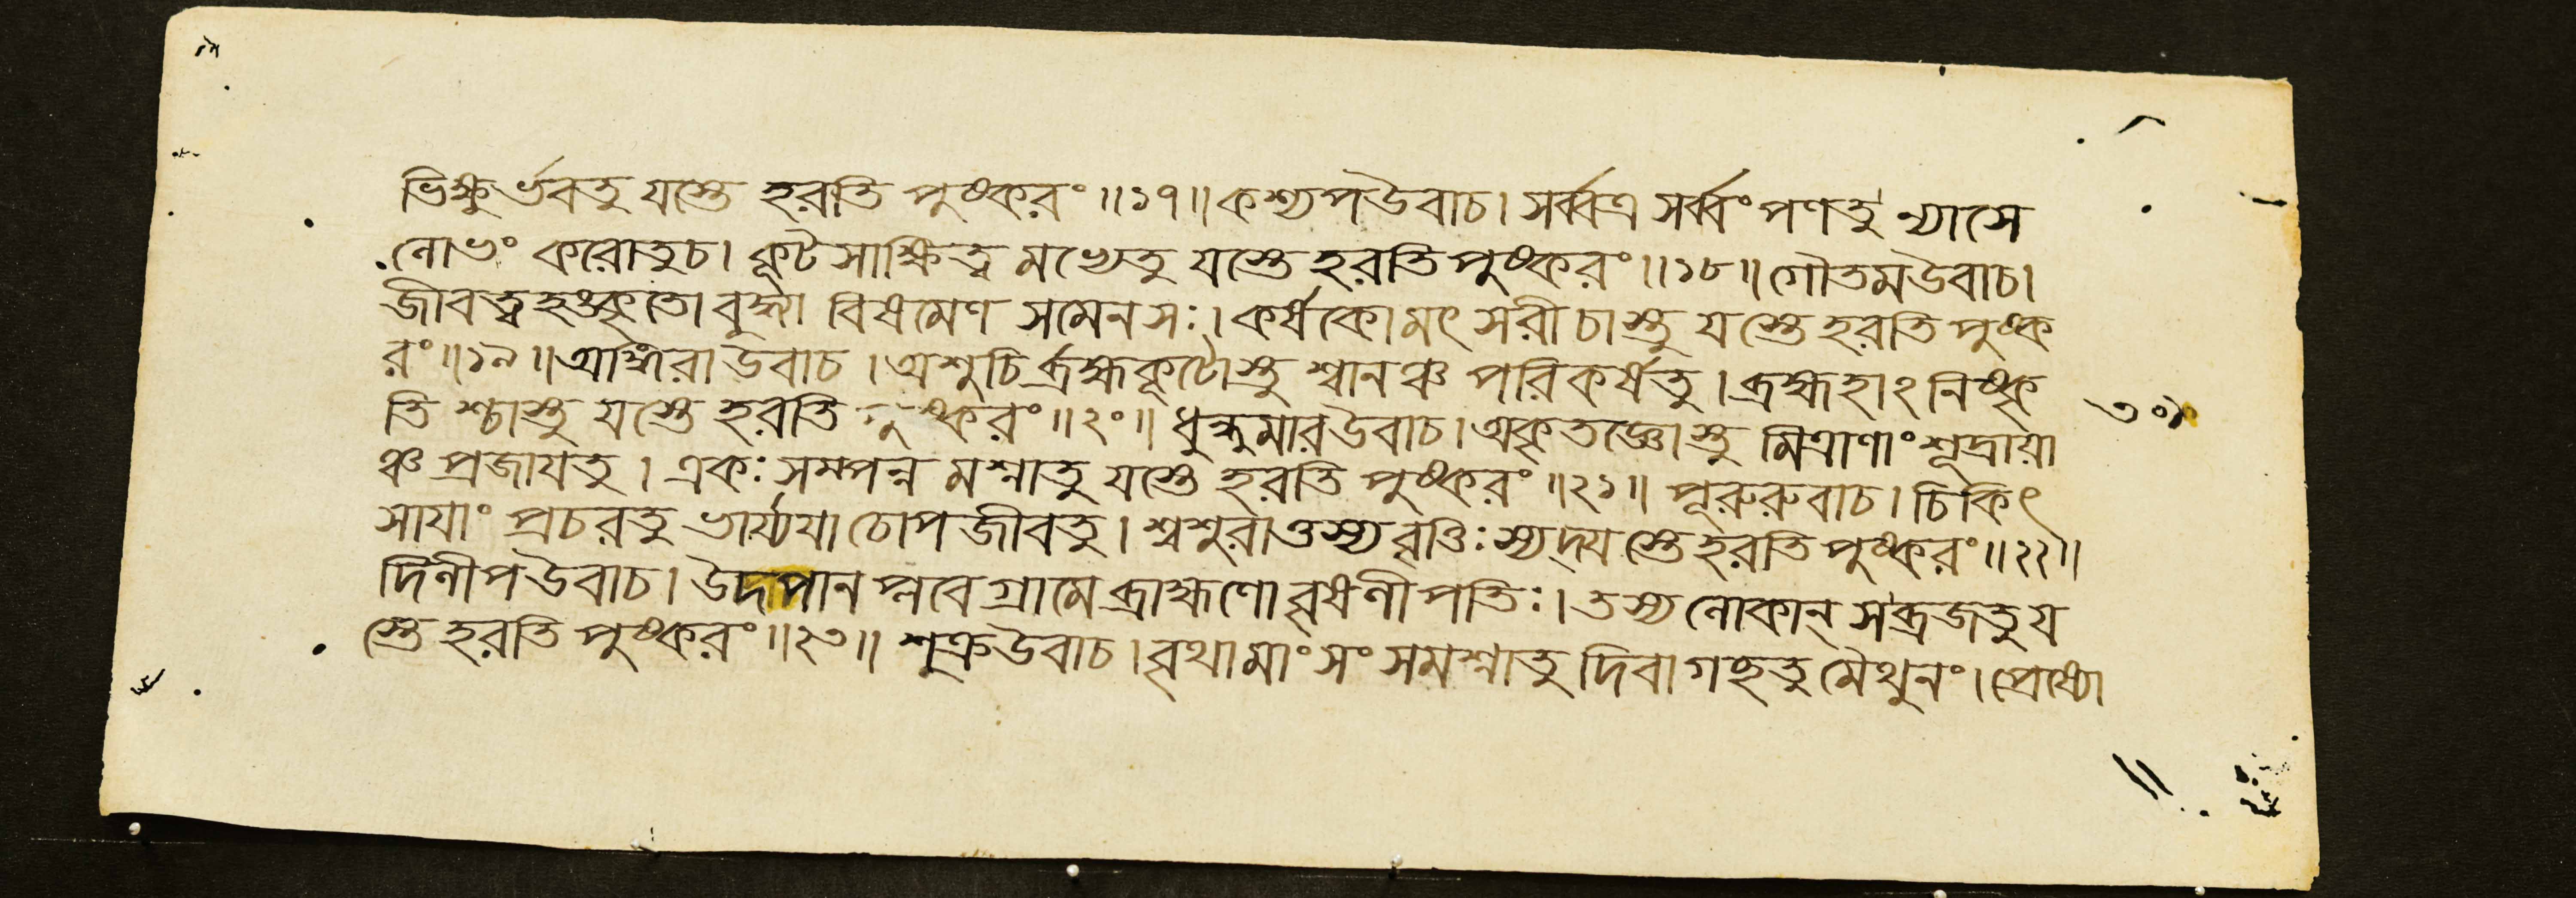 ভিক্ষুর্ভবতু যস্তে হরতি পুষ্করং ॥১৭॥ কশ্যপ উবাচ। সর্ব্বত্র সর্ব্বং পণতু ন্যাসে
লোভং করোতু চ। কূটসাক্ষিত্বমভ্যেতু যস্তে হরতি পুষ্করং ॥১৮॥ গৌতম উবাচ।
জীবত্বহঙ্কৃতো বুদ্ধ্যা বিষমেণ সমেন সঃ। কর্ষকো মৎসরী চাস্তু যস্তে হরতি পুষ্ক
রং ॥১৯॥ অঙ্গিরা উবাচ। অশুচির্ব্রহ্মকূটোস্তু শ্বানঞ্চ পরিকর্ষতু। ব্রহ্মহাঽনিষ্কৃ
তিশ্চাস্তু যস্তে হরতি পুষ্করং ॥২০॥ ধুন্ধুমার উবাচ। অকৃতজ্ঞোস্তু মিত্রাণাং শূদ্রায়া
ঞ্চ প্রজায়তু। একঃ সম্পন্নমশ্নাতু যস্তে হরতি পুষ্করং ॥২১॥ পূরুরুবাচ। চিকিৎ
সায়াং প্রচরতু ভার্য্যয়া চোপজীবতু। শ্বশুরাত্তস্য বৃত্তিঃ স্যদ্ যস্তে হরতি পুষ্করং ॥২২॥
দিলীপ উবাচ। উদপানপ্লবে গ্রামে ব্রাহ্মণো বৃষলীপতিঃ। তস্য লোকান্ স ব্রজতু য
স্তে হরতি পুষ্করং ॥২৩॥ শুক্র উবাচ। বৃথামাংসং সমশ্নাতু দিবা গচ্ছতু মৈথুনং। প্রেষ্যো